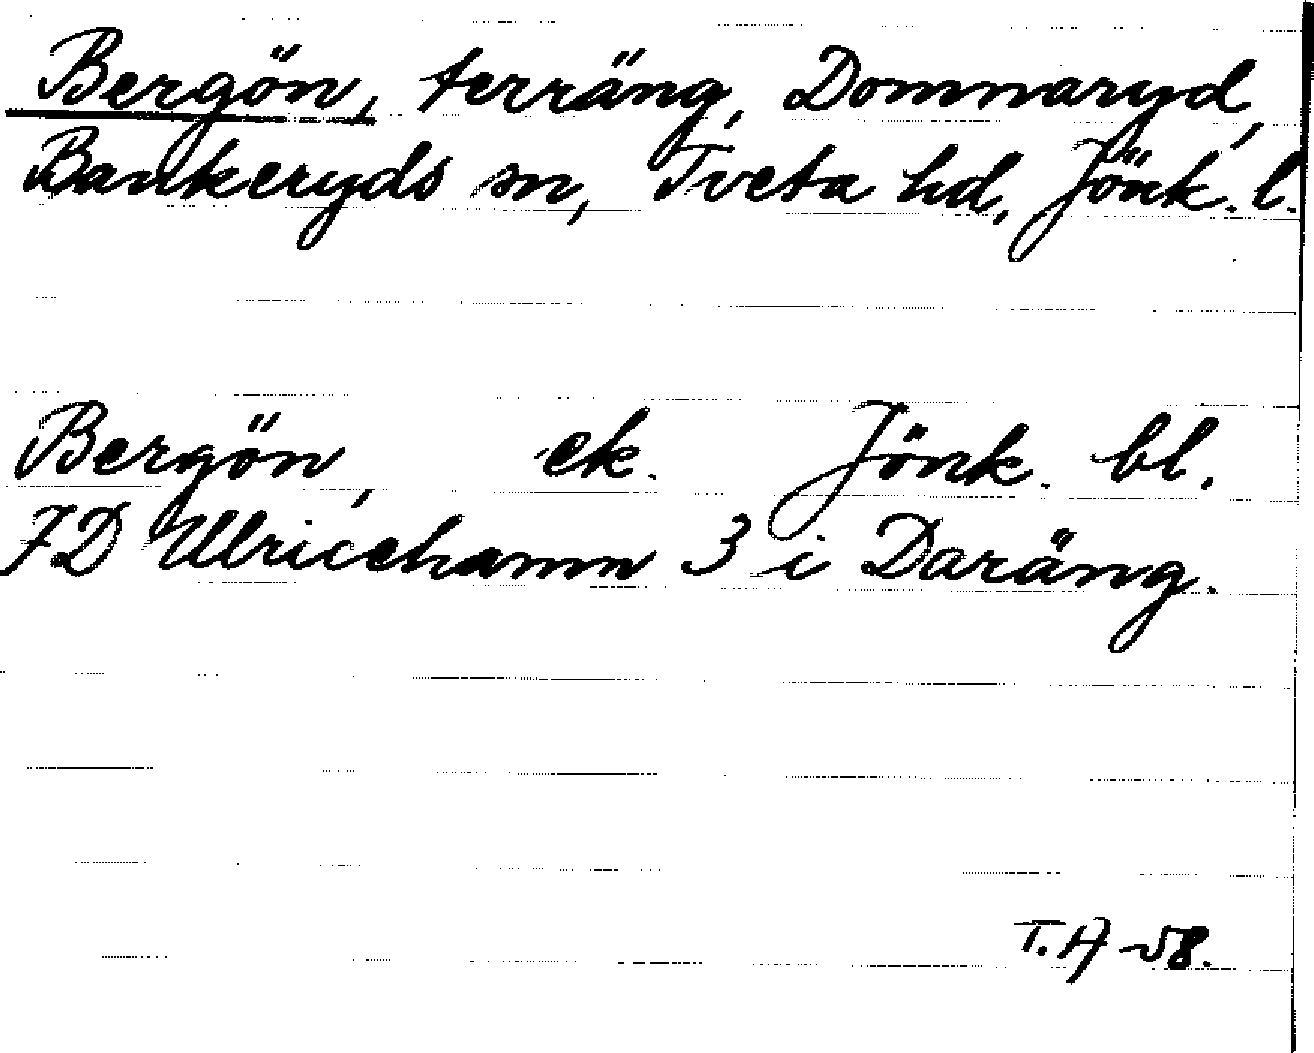 Bergön, terräng, Domnaryd,
Bankeryds sn, Tveta hd, Jönk. l.
Bergön, ek. Jönk. bl.
7D Ulricehamn 3 i Daräng.
T.A -58.